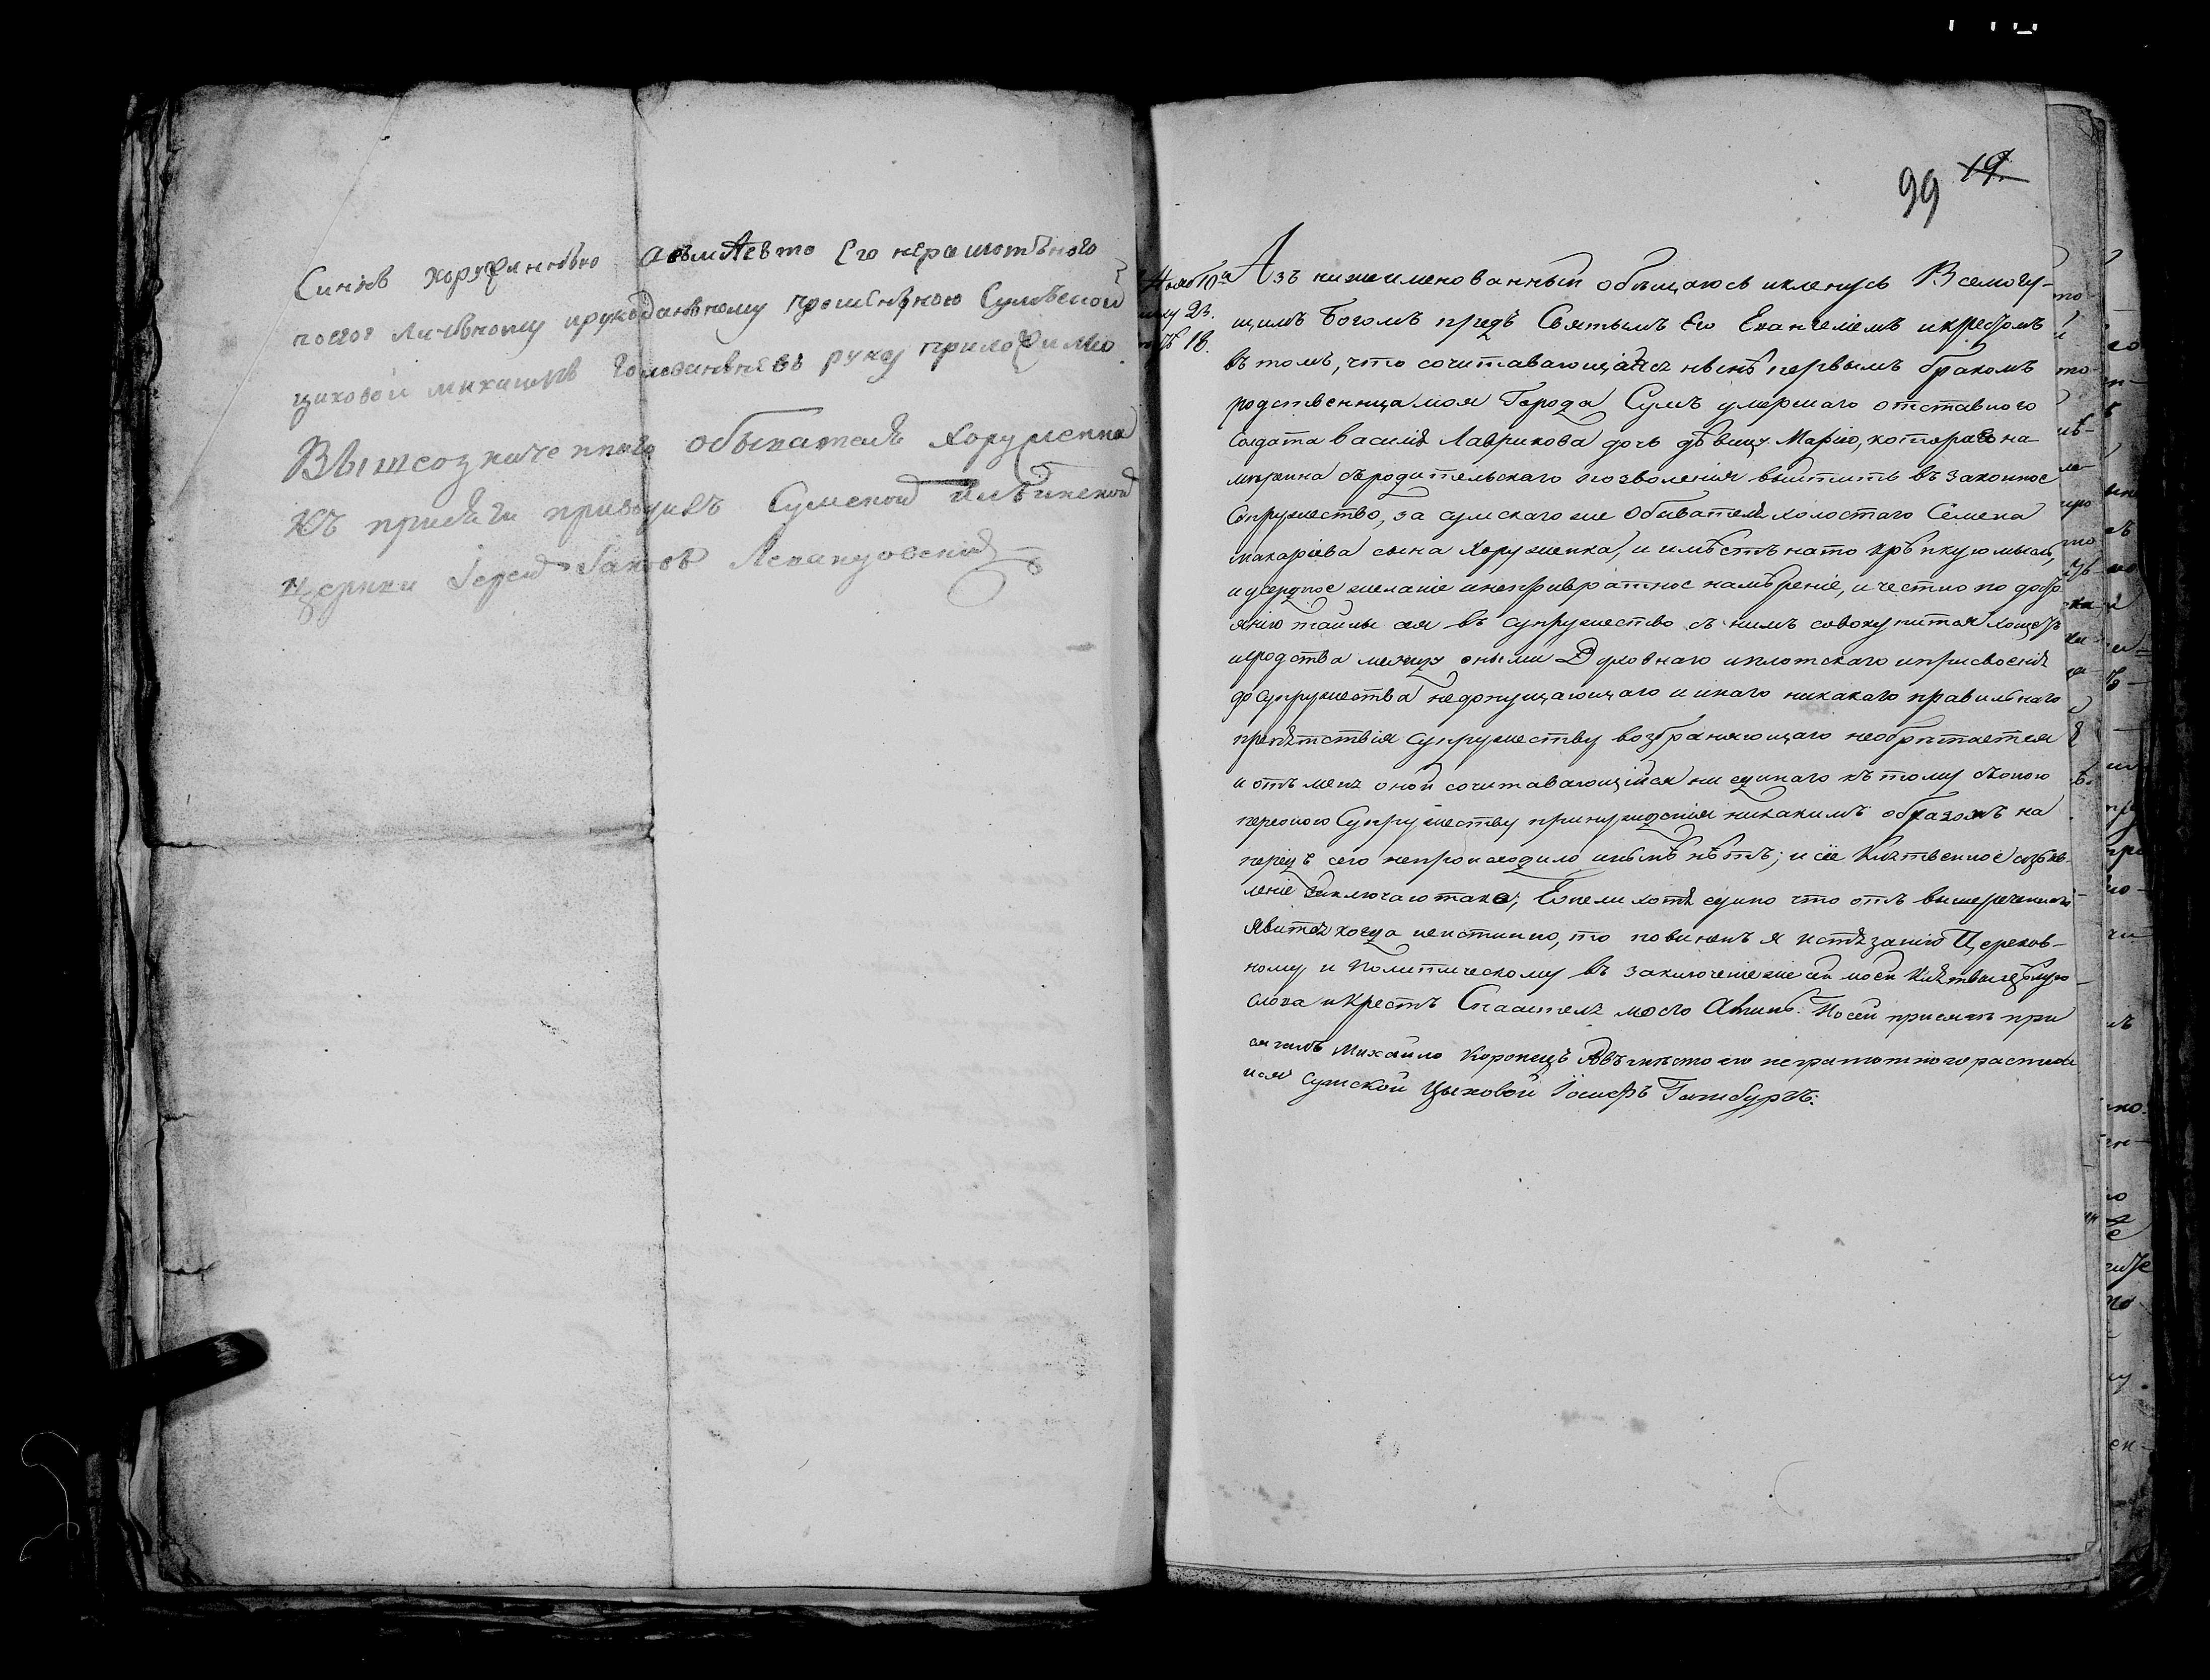 Синъ Хоружинъко а въместо Его неграмотъного
поего личьному ирукоданному прошению Сумъской
цеховой михаилъ руку приложилъ
Вышеозначенного обывателя Хоруженка
къ присяги приводилъ Сумской Илъинской
Церкви Іерей Іаковъ
99 19.
Азъ нижеименованный обѣщаюсь икленусь Всемогу-
щимъ Богомъ предъ Святымъ Его Евангеліемъ икрестомъ
въ томъ, что сочитавающаяся нынѣ первымъ бракомъ
родственица моя Города Сумъ умершаго отставного
Солдата Василія Лаврикова дочь дѣвица Марія, которая на
мѣрена съродительскаго позволенія выттить въ законное
Супружество, за сумскаго же Обывателя холостаго Семена
Макаріева сына Хоруженка, и имѣетъ нато крѣпкую мысль,
иусердное желаніе инепривратное намѣреніе, и честно по добро
янію тайны сея въ супружество съ нимъ совокупится хощетъ
иродства между оными Духовнаго иплотскаго иприсвоенія
до супружества недопущающаго и инаго никакаго правильнаго
препятствія Супружеству возбраняющаго необрѣтается
и отъ меня оной сочитавающійся ни единаго къ тому съ оною
персоною Супружеству принужденія никакимъ образомъ на
передъ сего непроисходило инынѣ нѣтъ; и сіе клятвенное объяв-
леніе заключаю тако; Ежели хотя едино что отъ вышереченныхъ
явится когда неистинно, то повиненъ я истязанію Церков-
ному и Политическому въ заключеніе же сей моей клятвы цѣлую
слова икрестъ Спасителя моего Аминь. По сей присягѣ при
сягалъ Михайло Коропецъ Авъмѣсто его неграмотного расписа
лся сумской Цеховой Іосифъ